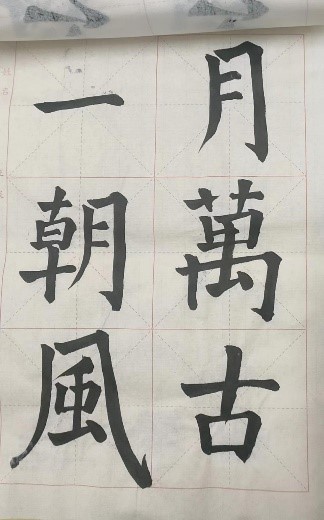 月萬古
一朝風